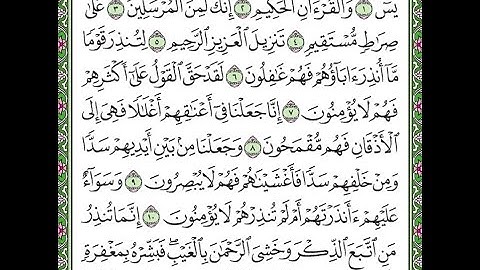 يسٓ ١ وَٱلْقُرْءَانِ ٱلْحَكِيمِ ٢ إِنَّكَ لَمِنَ ٱلْمُرْسَلِينَ ٣ عَلَىٰ
صِرَٰطٍ مُّسْتَقِيمٍ ٤ تَنزِيلَ ٱلْعَزِيزِ ٱلرَّحِيمِ ٥ لِتُنذِرَ قَوْمًا
مَّآ أُنذِرَ ءَابَآؤُهُمْ فَهُمْ غَٰفِلُونَ ٦ لَقَدْ حَقَّ ٱلْقَوْلُ عَلَىٰٓ أَكْثَرِهِمْ
فَهُمْ لَا يُؤْمِنُونَ ٧ إِنَّا جَعَلْنَا فِىٓ أَعْنَٰقِهِمْ أَغْلَٰلًا فَهِىَ إِلَى
ٱلْأَذْقَانِ فَهُم مُّقْمَحُونَ ٨ وَجَعَلْنَا مِنۢ بَيْنِ أَيْدِيهِمْ سَدًّا
وَمِنْ خَلْفِهِمْ سَدًّا فَأَغْشَيْنَٰهُمْ فَهُمْ لَا يُبْصِرُونَ ٩ وَسَوَآءٌ
عَلَيْهِمْ ءَأَنذَرْتَهُمْ أَمْ لَمْ تُنذِرْهُمْ لَا يُؤْمِنُونَ ١٠ إِنَّمَا تُنذِرُ
مَنِ ٱتَّبَعَ ٱلذِّكْرَ وَخَشِىَ ٱلرَّحْمَٰنَ بِٱلْغَيْبِ ۖ فَبَشِّرْهُ بِمَغْفِرَةٍ